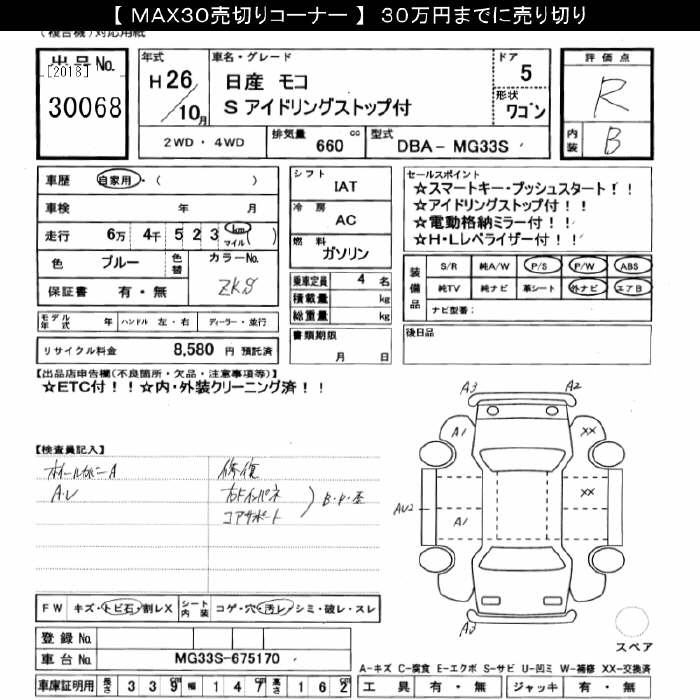 【 MAX30売切りコーナー 】 30万円までに売り切り
(複合機)対応用紙
出品No.
[2018]
30068
年式
H26/10月
車名・グレード
日産 モコ
S アイドリングストップ付
ドア
5
形状
ワゴン
評価点
R
内装
B
2WD・4WD
排気量 660 cc
型式 DBA- MG33S
車歴 自家用・( )
車検 年 月
走行 6万 4千 5 2 3 km マイル ( )
色 ブルー 色替 カラーNo.
保証書 有・無 ZKS
シフト IAT
冷房 AC
燃料 ガソリン
乗車定員 4 名
積載量 kg
総重量 kg
書類期限 月 日
セールスポイント
☆スマートキー・プッシュスタート！！
☆アイドリングストップ付！！
☆電動格納ミラー付！！
☆H・Lレベライザー付！！
装備品
S/R 純A/W P/S P/W ABS
純TV 純ナビ 革シート 外ナビ エアB
ナビ型番：
後日品
モデル年式 年 ハンドル 左・右 ディーラー・並行
リサイクル料金 8,580 円 預託済
【出品店申告欄(不良箇所・欠品・注意事項等)】
☆ETC付！！☆内・外装クリーニング済！！
【検査員記入】
ホイールカバーA
A・U
修復
右ドインパネ
コアサポート
B・P・歪
A3 A2
A1 XX
XX
AU2 A1
A3
スペア
FW キズ・トビ石・割レX シート内装 コゲ・穴・汚レ・シミ・破レ・スレ
登録No.
車台No. MG33S-675170
A-キズ C-腐食 E-エクボ S-サビ U-凹ミ W-補修 XX-交換済
車庫証明用 長さ 3 3 9 cm 幅 1 4 7 cm 高さ 1 6 2 cm
工具 有・無 ジャッキ 有・無